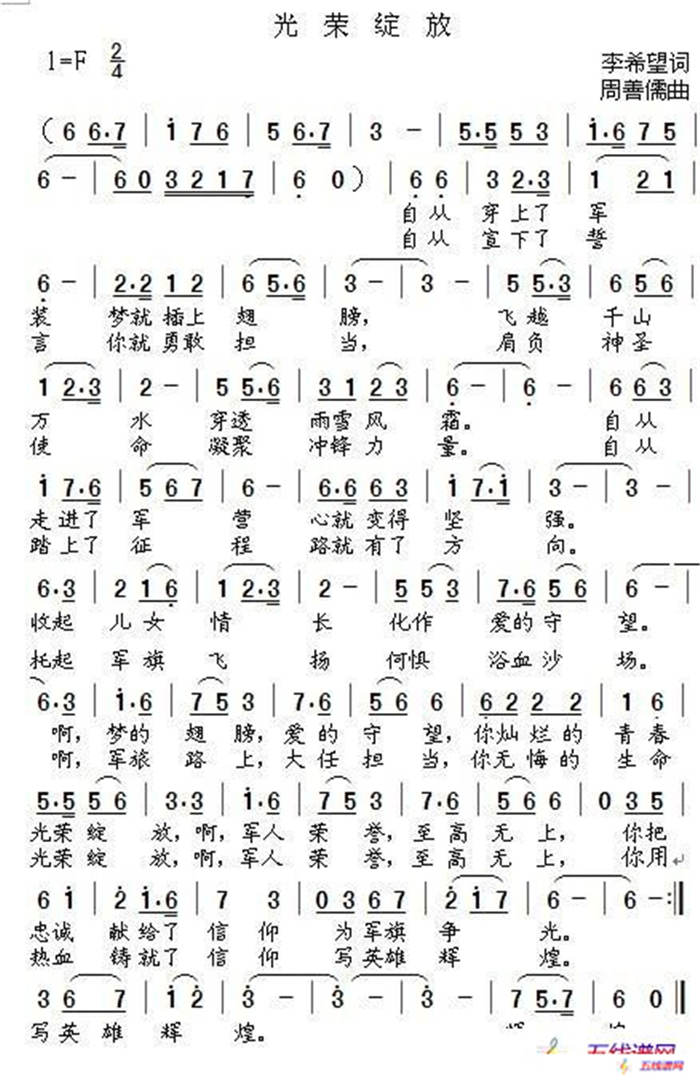 光荣绽放
1=F 2/4
李希望词
周善儒曲
( 6 6·7 | i 7 6 | 5 6·7 | 3 - | 5·5 5 3 | i·6 7 5 |
6 - | 6 0 3 2 1 7 | 6 0 ) | 6 6 | 3 2·3 | 1 2 1 |
自从 穿上了 军
自从 宣下了 誓
6 - | 2·2 1 2 | 6 5·6 | 3 - | 3 - | 5 5·3 | 6 5 6 |
装 梦就插上 翅 膀， 飞越 千山
言 你就勇敢 担 当， 肩负 神圣
1 2·3 | 2 - | 5 5·6 | 3 1 2 3 | 6 - | 6 - | 6 6 3 |
万 水 穿透 雨雪风 霜。 自从
使 命 凝聚 冲锋力 量。 自从
i 7·6 | 5 6 7 | 6 - | 6·6 6 3 | i 7·i | 3 - | 3 - |
走进了 军 营 心就变得 坚 强。
踏上了 征 程 路就有了 方 向。
6·3 | 2 1 6 | 1 2·3 | 2 - | 5 5 3 | 7·6 5 6 | 6 - |
收起 儿女 情 长 化作 爱的守 望。
托起 军旗 飞 扬 何惧 浴血沙 场。
6·3 | i·6 | 7 5 3 | 7·6 | 5 6 | 6 2 2 2 | 1 6 |
啊，梦的 翅 膀，爱的守 望，你灿烂的 青春
啊，军旅 路 上，大任担 当，你无悔的 生命
5·5 5 6 | 3·3 | i·6 | 7 5 3 | 7·6 | 5 5 6 | 0 3 5 |
光荣绽 放，啊，军人 荣 誉，至高 无上， 你把
光荣绽 放，啊，军人 荣 誉，至高 无上， 你用
6 i | 2 i·6 | 7 3 | 0 3 6 7 | 2 i 7 | 6 - | 6 - :|
忠诚 献给了 信仰 为军旗 争 光。
热血 铸就了 信仰 写英雄 辉 煌。
3 6 7 | i 2 | 3 - | 3 - | 3 - | 7 5·7 | 6 0 ||
写英雄 辉 煌。
五线谱网
五线谱网